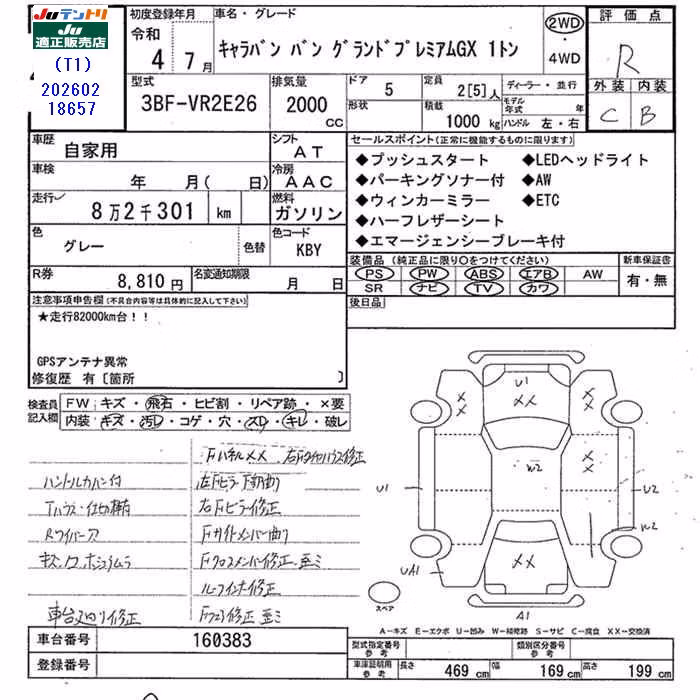 JUテントリ
JU
適正販売店
(T1)
202602
18657
初度登録年月
令和
4 7月
車名・グレード
キャラバン バン グランドプレミアムGX 1トン
2WD
・
4WD
評価点
R
外装 内装
C B
型式
3BF-VR2E26
排気量
2000
CC
ドア
5
形状
定員
2[5]人
積載
1000 kg
ディーラー・並行
モデル年式 年
ハンドル 左・右
車歴
自家用
シフト
AT
車検
年 月( 日)
冷房
AAC
走行
8万2千301 km
燃料
ガソリン
色
グレー
色替
色コード
KBY
R券
8,810円
名変通知期限
月 日
セールスポイント(正常に機能するものに限ります)
◆プッシュスタート ◆LEDヘッドライト
◆パーキングソナー付 ◆AW
◆ウィンカーミラー ◆ETC
◆ハーフレザーシート
◆エマージェンシーブレーキ付
装備品 (純正品に限り〇をつけてください)
PS PW ABS エアB AW
SR ナビ TV カワ
新車保証書
有・無
後日品
注意事項申告欄(不具合内容等は具体的に記入して下さい)
★走行82000km台!!
GPSアンテナ異常
修復歴 有〔箇所 〕
検査員
記入欄
FW キズ・飛石・ヒビ割・リペア跡・×要
内装 キズ・汚レ・コゲ・穴・スレ・キレ・破レ
ハンドルカバー付
Rワイパー欠
車台廻り修正
Fパネルメメ
右Fピラー修正
Fサイドメンバー曲り
Fクロスメンバー修正
U1
××
××
××
W2
U1
U2
W2
UA1
××
A1
スペア
A-キズ E-エクボ U-凹み W-補修跡 S-サビ C-腐食 XX-交換済
車台番号
160383
登録番号
型式指定番号
参考
類別区分番号
参考
車庫証明用
参考
長さ 469 cm 幅 169 cm 高さ 199 cm